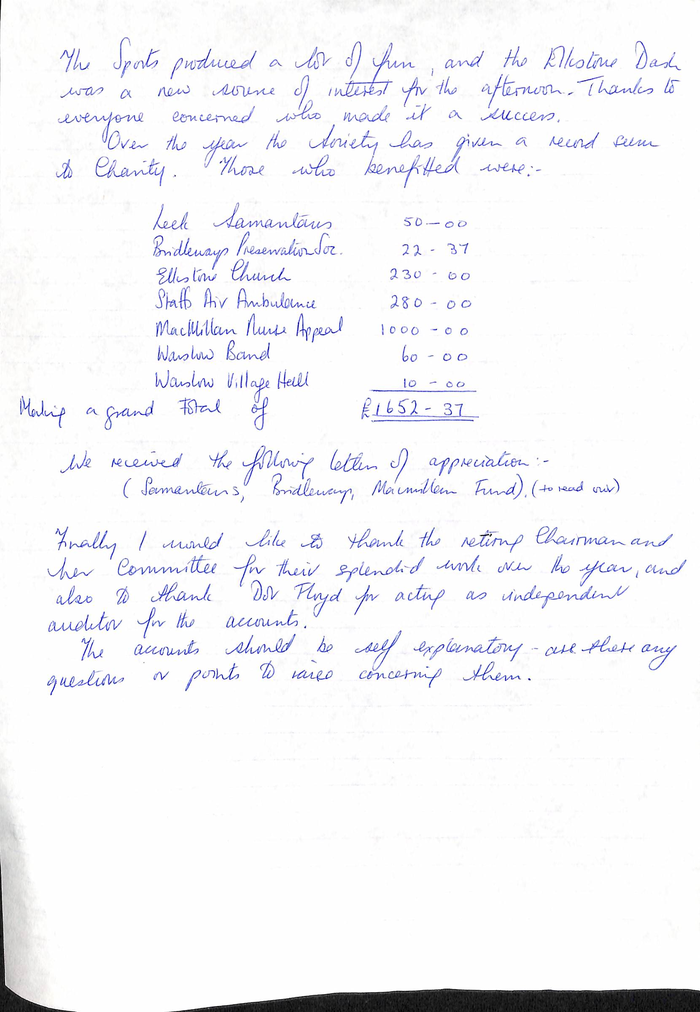 The Sports produced a lot of fun, and the Elkstone Dash
was a new source of interest for the afternoon. Thanks to
everyone concerned who made it a success.
Over the year the Society has given a record sum
to Charity. Those who benefitted were:-
Leek Samaritans 50-00
Bridleways Preservation Soc. 22-37
Elkstone Church 230-00
Staffs Air Ambulance 280-00
MacMillan Nurse Appeal 1000-00
Warslow Band 60-00
Warslow Village Hall 10-00
Making a grand Total of £1652-37
We received the following letters of appreciation:-
(Samaritans, Bridleways, Macmillan Fund). (to read out)
Finally I would like to thank the retiring Chairman and
her Committee for their splendid work over the year, and
also to thank Dot Floyd for acting as independent
auditor for the accounts.
The accounts should be self explanatory - are there any
questions or points to raise concerning them.